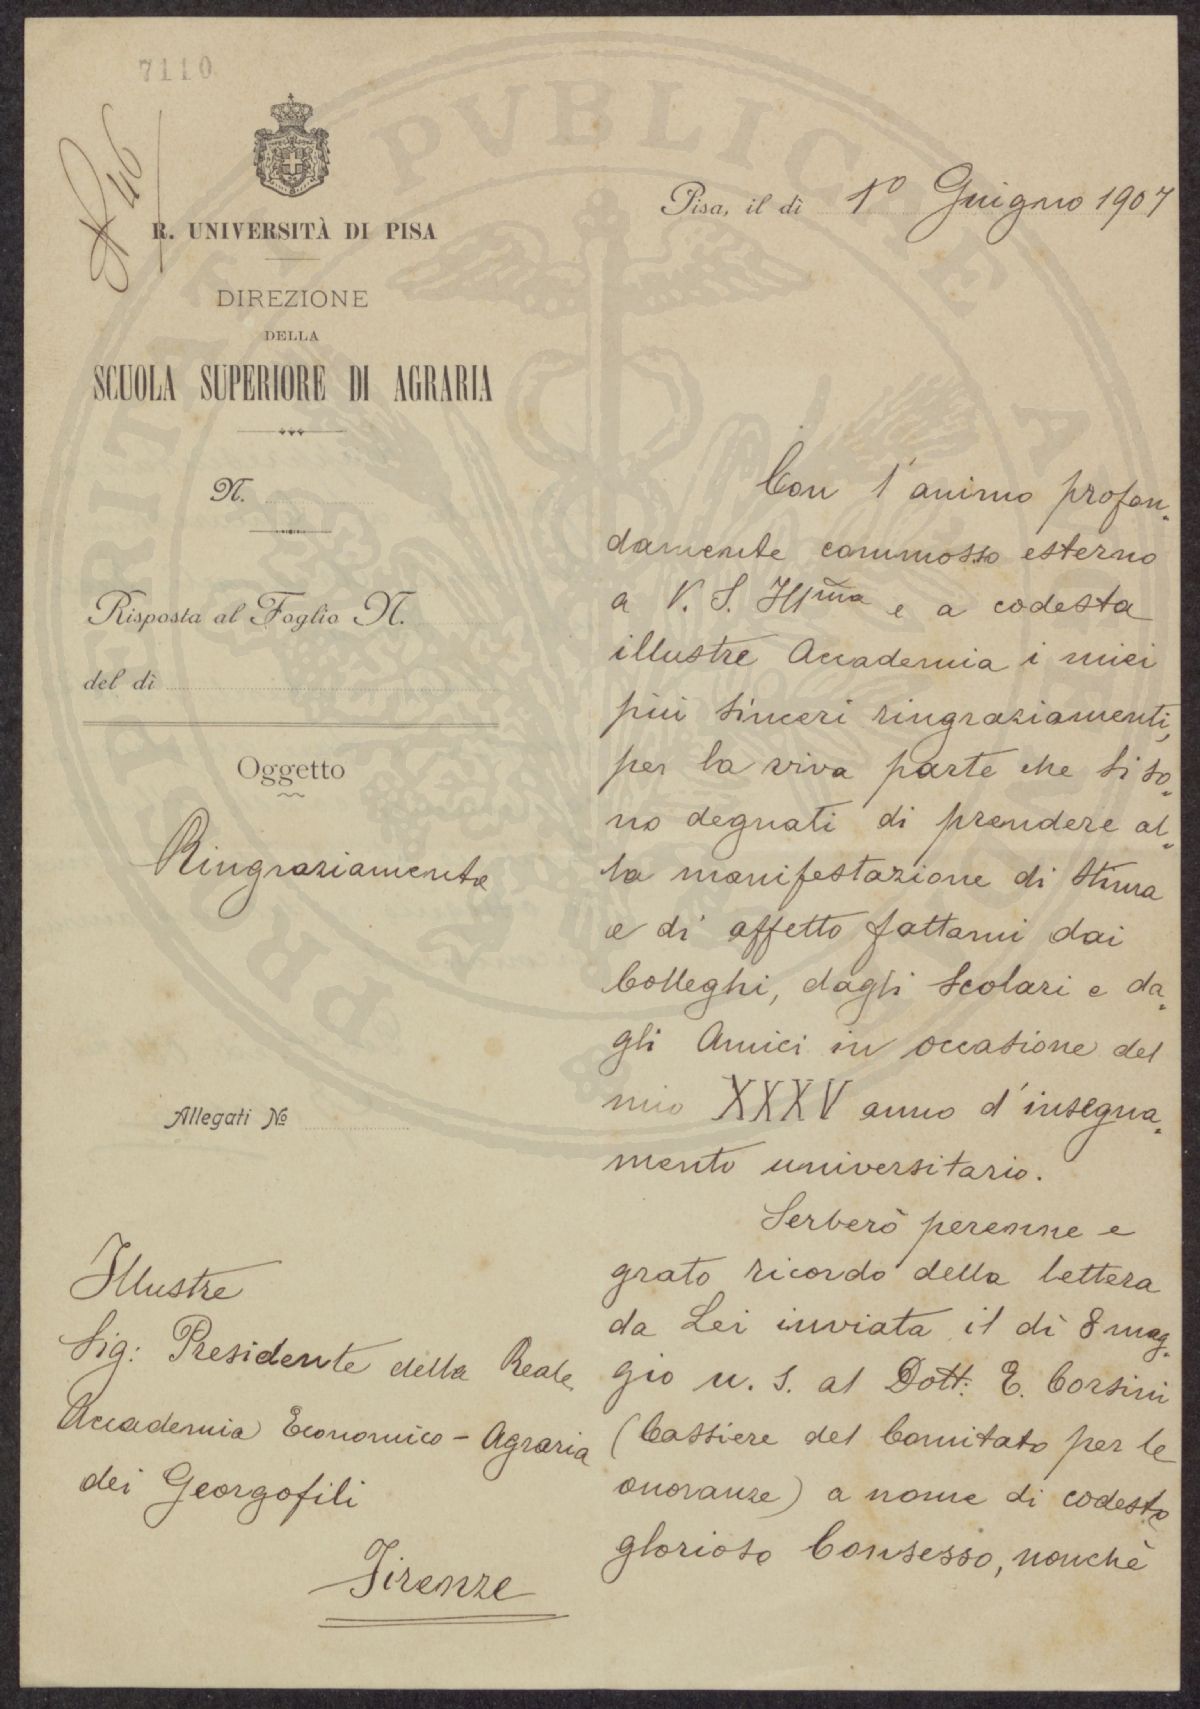 7110
R. UNIVERSITÀ DI PISA
DIREZIONE
DELLA
SCUOLA SUPERIORE DI AGRARIA
N.
Risposta al Foglio N.
del dì
Oggetto
Ringraziamento
Allegati No
Illustre
Sig: Presidente della Reale
Accademia Economico-Agraria
dei Georgofili
Firenze
Pisa, il dì 1º Giugno 1907
Con l'animo profon-
damente commosso esterno
a V. S. Illma e a codesta
illustre Accademia i miei
più sinceri ringraziamenti,
per la viva parte che si so-
no degnati di prendere al-
la manifestazione di stima
e di affetto fattami dai
Colleghi, dagli Scolari e da-
gli Amici in occasione del
mio XXXV anno d'insegna-
mento universitario.
Serberò perenne e
grato ricordo della lettera
da Lei inviata il dì 8 mag-
gio u. s. al Dott: E. Corsini
(Cassiere del Comitato per le
onoranze) a nome di codesto
glorioso Consesso, nonchè
PROSPERITATI PVBLICAE AVGENDAE